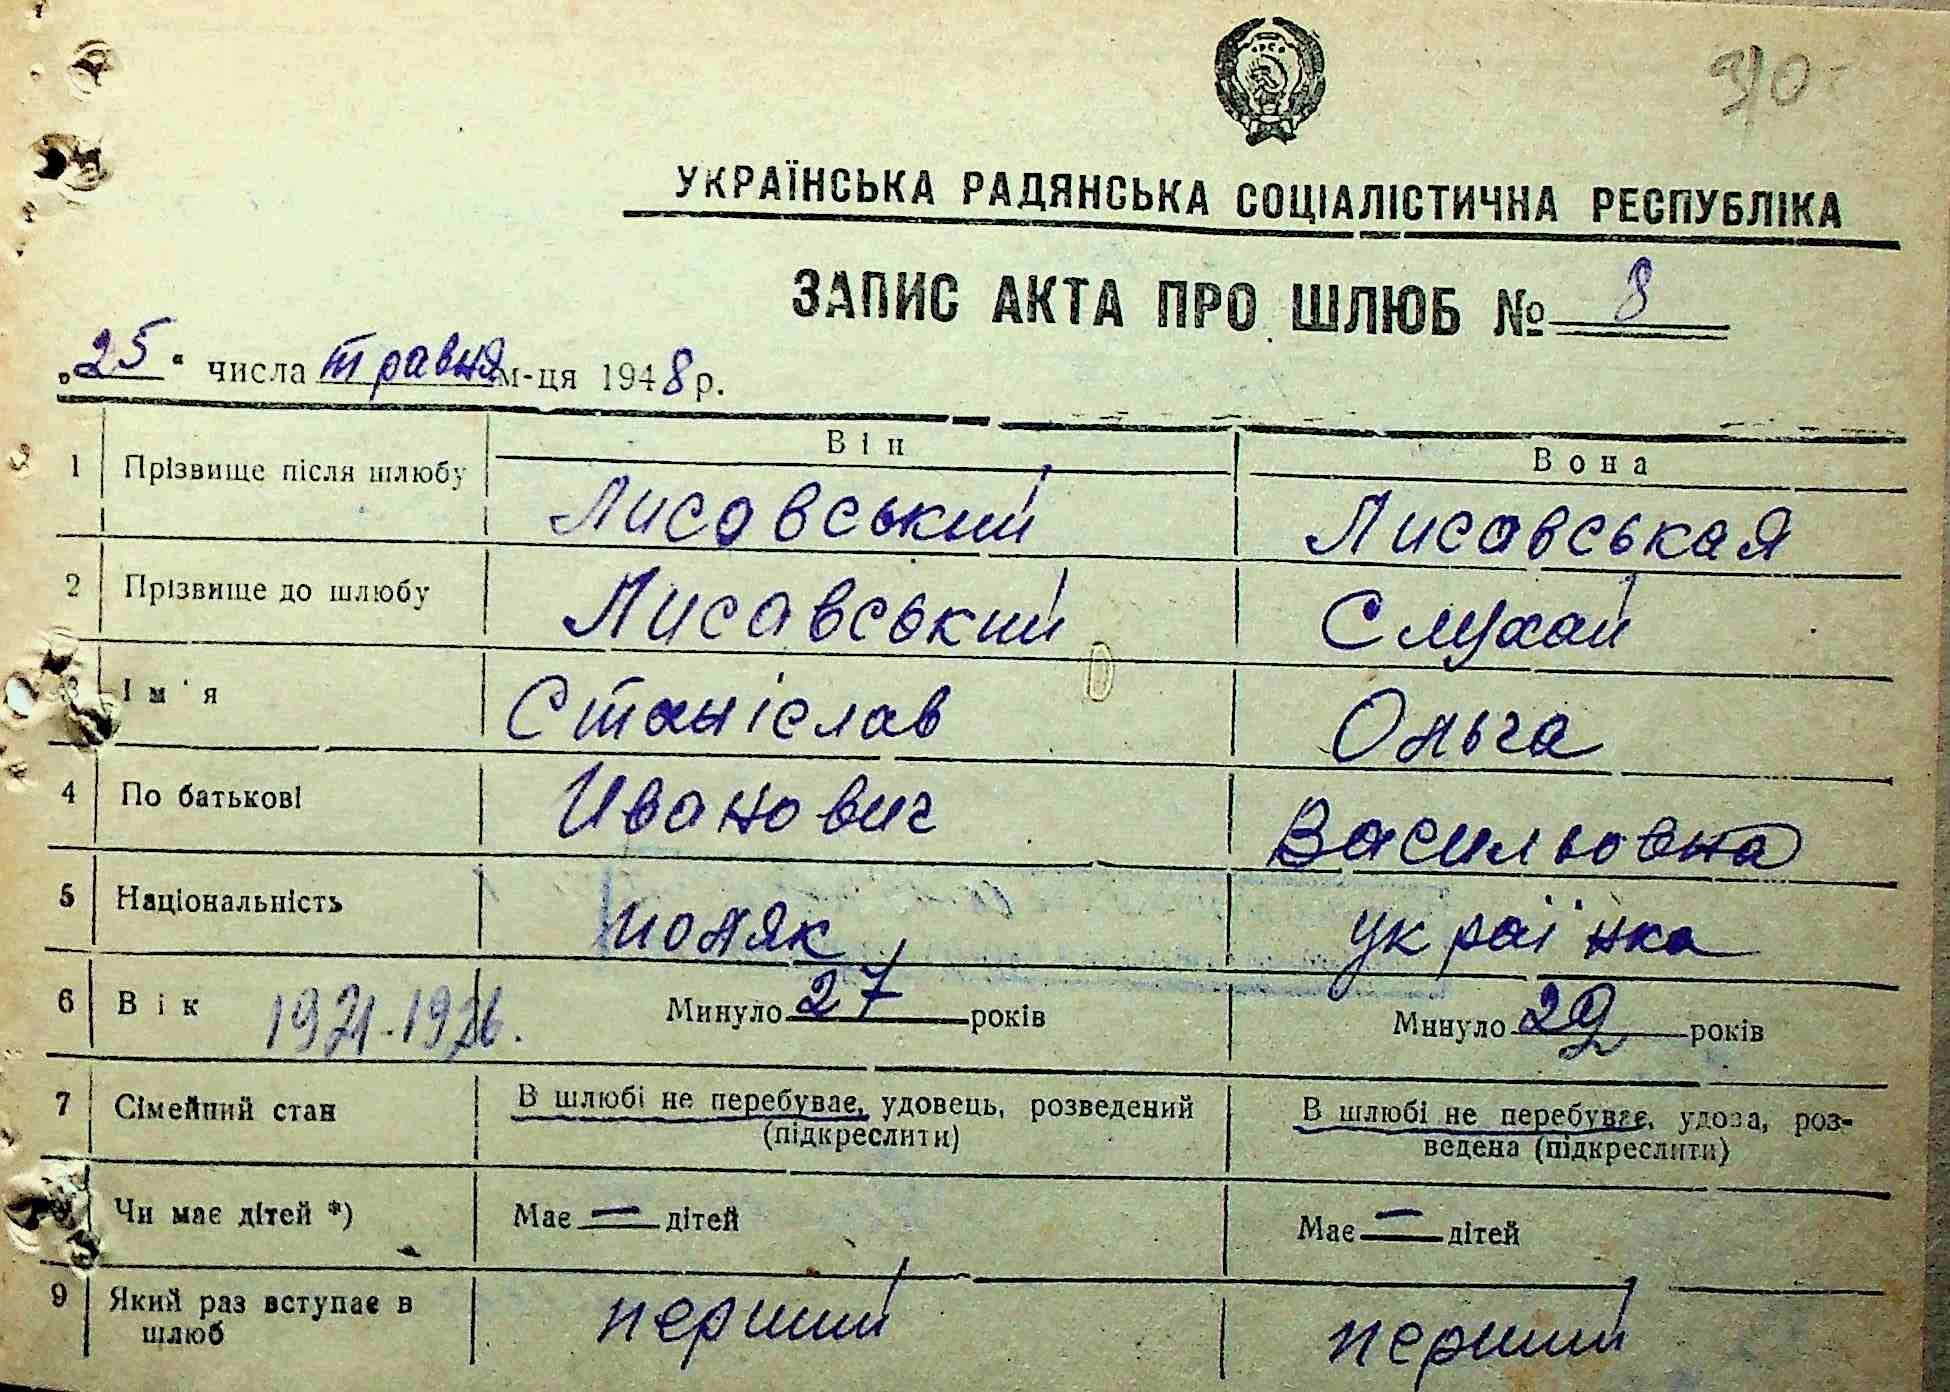 310
УКРАЇНСЬКА РАДЯНСЬКА СОЦІАЛІСТИЧНА РЕСПУБЛІКА
ЗАПИС АКТА ПРО ШЛЮБ № 8
„25“ числа травня м-ця 1948 р.
Він Вона
1 Прізвище після шлюбу Лисовський Лисовськая
2 Прізвище до шлюбу Лисовський Слухай
3 Ім'я Станіслав Ольга
4 По батькові Иванович Васильовна
5 Національність поляк українка
6 Вік 1921-1926. Минуло 27 років Минуло 22 років
7 Сімейний стан В шлюбі не перебуває, удовець, розведений В шлюбі не перебуває, удова, роз-
(підкреслити) ведена (підкреслити)
8 Чи має дітей *) Має — дітей Має — дітей
9 Який раз вступає в перший перший
шлюб